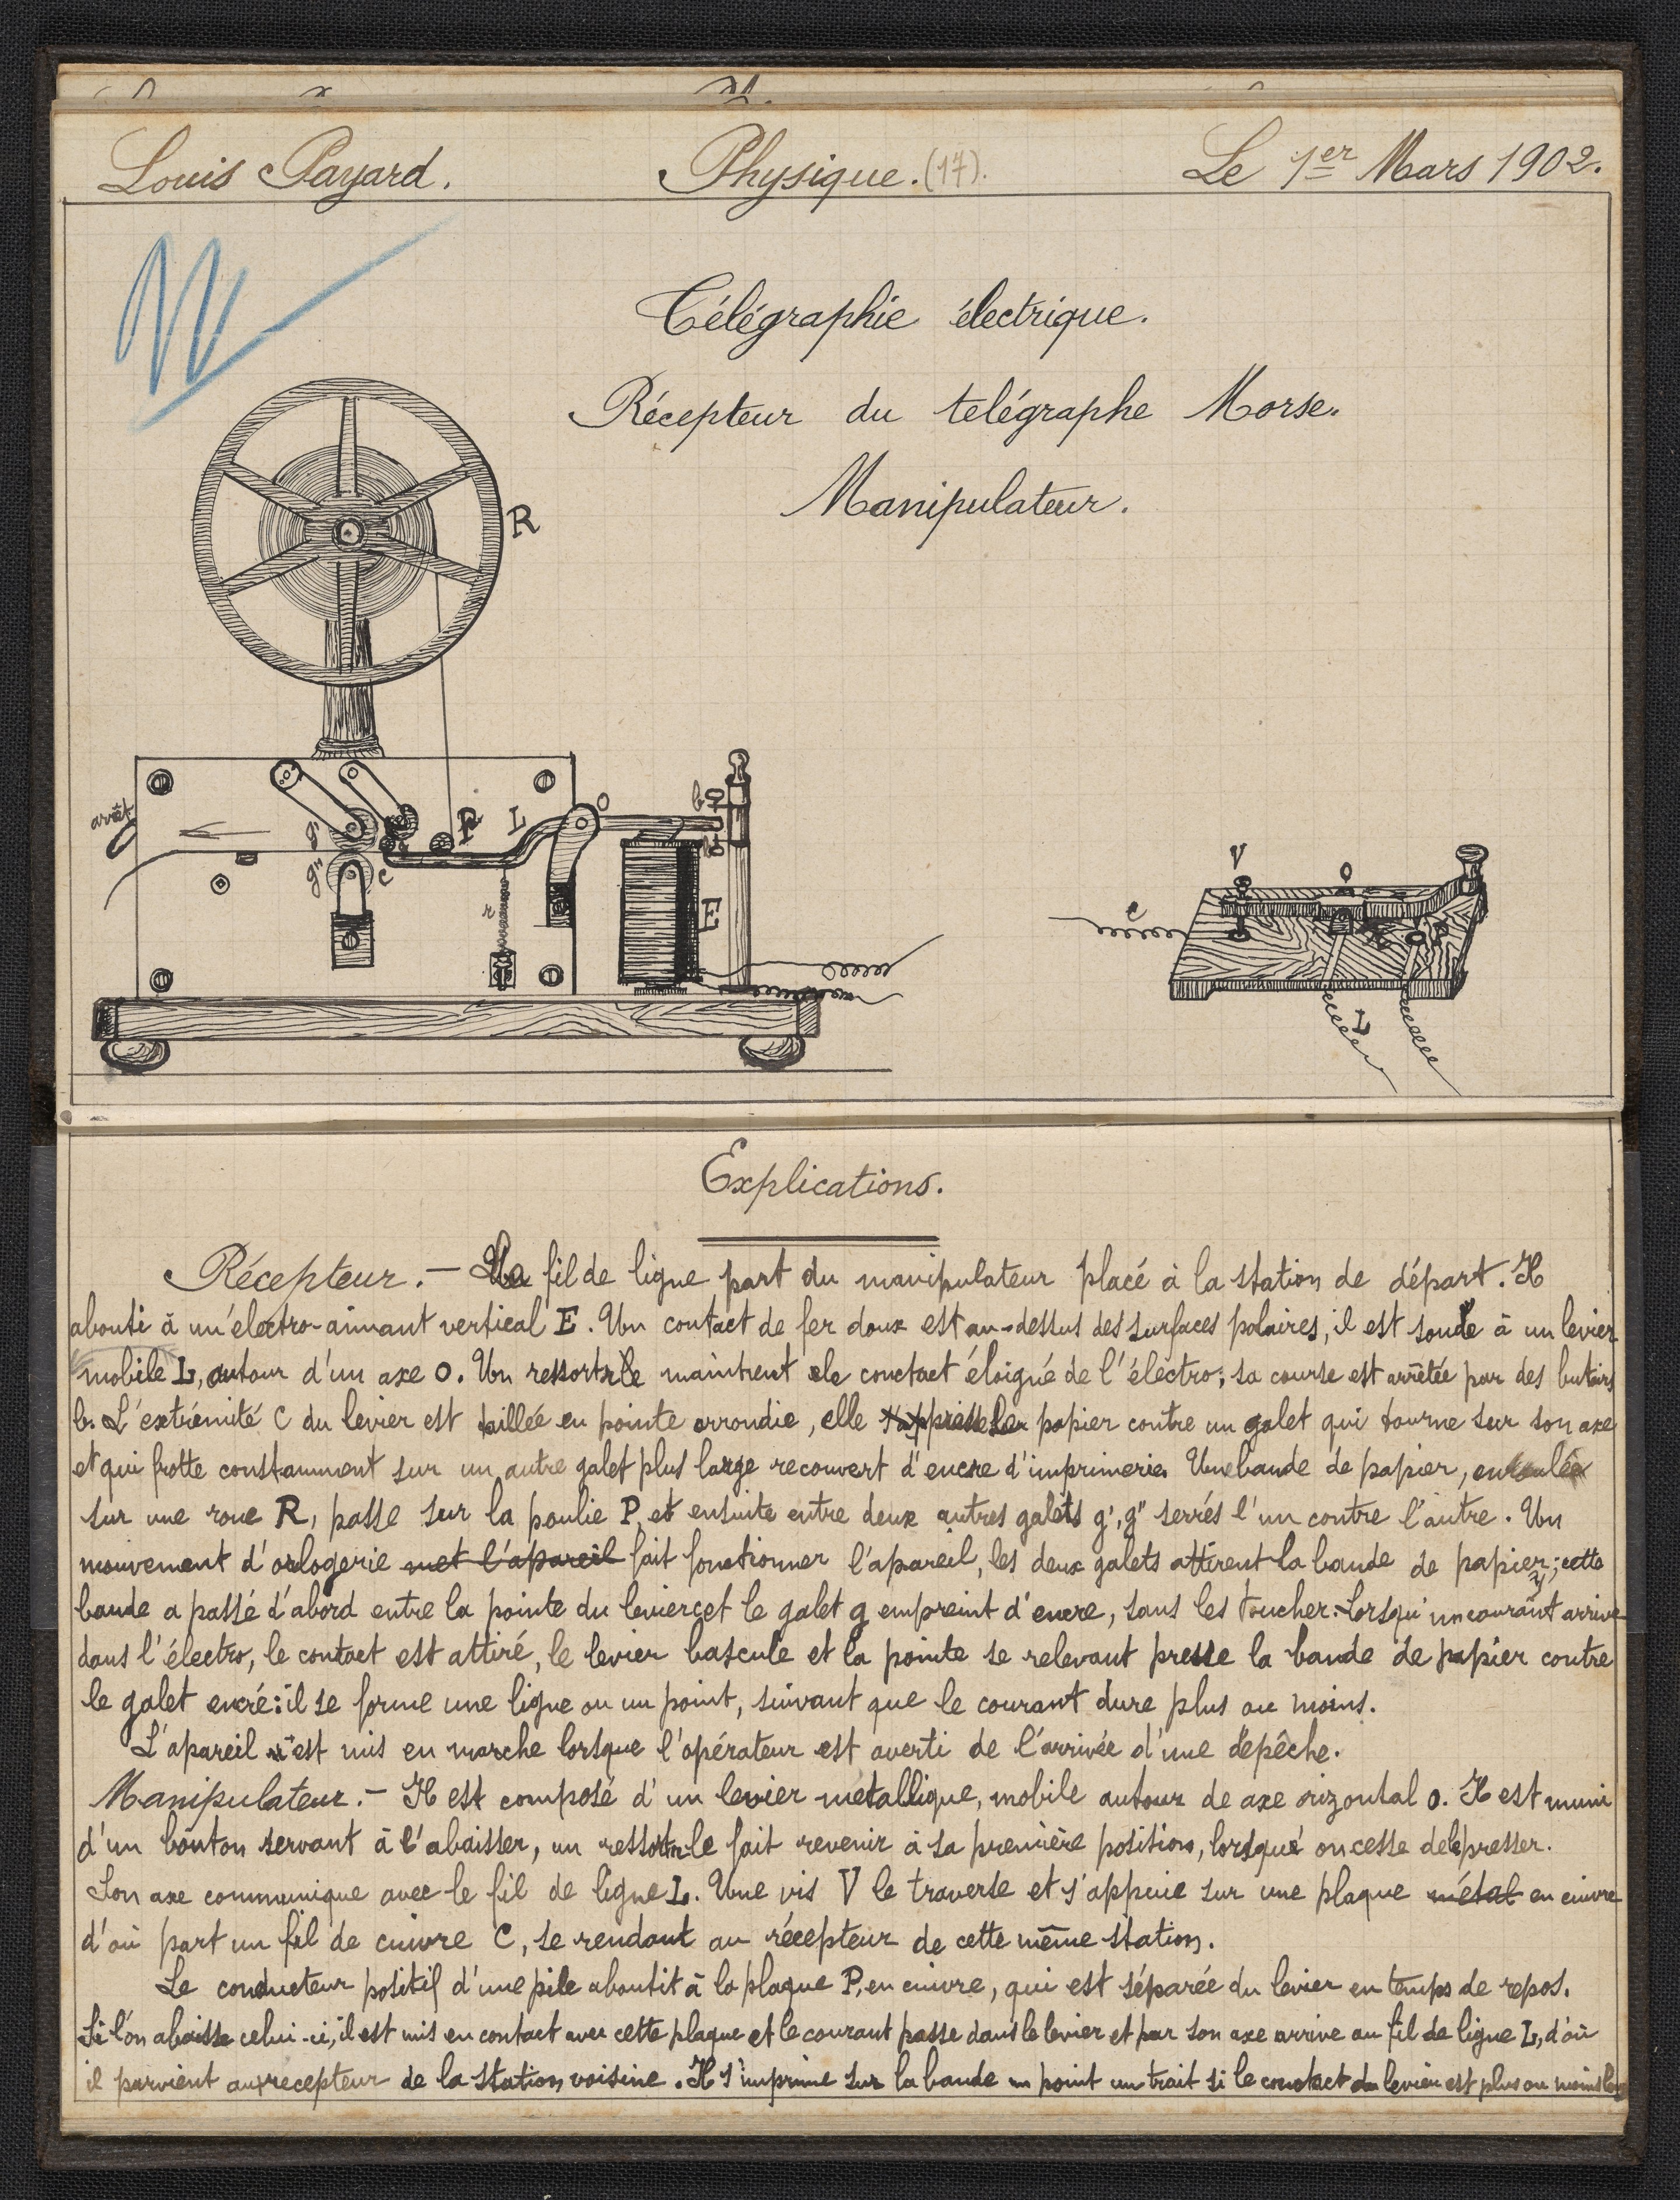 Louis Payard. Physique. (17). Le 1er Mars 1902.
Télégraphie électrique.
Récepteur du telégraphe Morse.
Manipulateur.
R
arrêt
g'
g"
c
P
L
O
b
r
E
V
O
c
L
Explications.
Récepteur. — Un fil de ligne part du manipulateur placé à la station de départ. Il
abouti à un électro-aimant vertical E. Un contact de fer doux est au-dessus des surfaces polaires, il est soudé à un levier
mobile L, autour d'un axe O. Un ressort r le maintient le contact éloigné de l'électro; sa course est arrêtée par des butoirs
b. L'extrémité C du levier est taillée en pointe arrondie, elle presse le papier contre un galet qui tourne sur son axe
et qui frotte constamment sur un autre galet plus large recouvert d'encre d'imprimerie. Une bande de papier, enroulée
sur une roue R, passe sur la poulie P, et ensuite entre deux autres galets g', g" serrés l'un contre l'autre. Un
mouvement d'orlogerie met l'apareil fait fonctionner l'apareil, les deux galets attirent la bande de papier; cette
bande a passé d'abord entre la pointe du levier c et le galet g empreint d'encre, sans les toucher. Lorsqu'un courant arrive
dans l'électro, le contact est attiré, le levier bascule et la pointe se relevant presse la bande de papier contre
le galet encré: il se forme une ligne ou un point, suivant que le courant dure plus ou moins.
L'apareil n'est mis en marche lorsque l'opérateur est averti de l'arrivée d'une depêche.
Manipulateur. — Il est composé d'un levier métallique, mobile autour de axe orizontal O. Il est muni
d'un bouton servant à l'abaisser, un ressort r le fait revenir à sa première position, lorsque on cesse de le presser.
Son axe communique avec le fil de ligne L. Une vis V le traverse et s'appuie sur une plaque métal en cuivre
d'où part un fil de cuivre C, se rendant au récepteur de cette même station.
Le conducteur positif d'une pile aboutit à la plaque P, en cuivre, qui est séparée du levier en temps de repos.
Si l'on abaisse celui-ci, il est mis en contact avec cette plaque et le courant passe dans le levier et par son axe arrive au fil de ligne L, d'où
il parvient au recepteur de la station voisine. Il s'imprime sur la bande un point un trait si le contact du levier est plus ou moins long